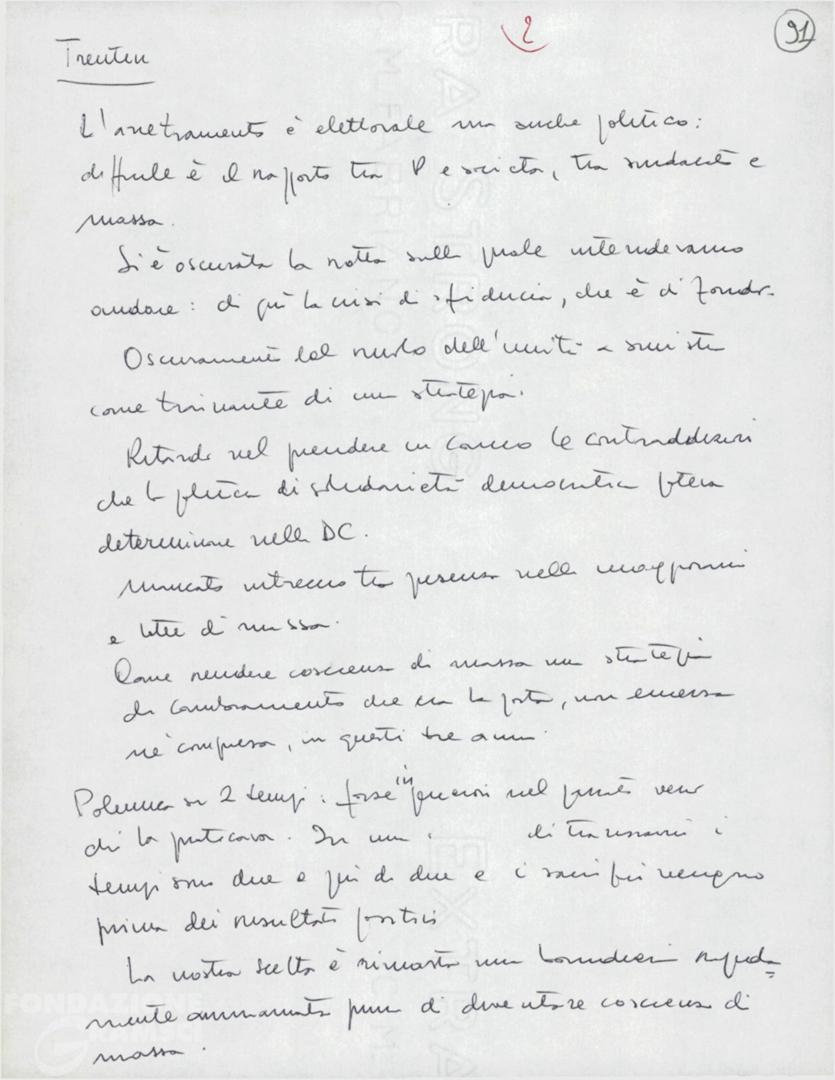 2
91
Trentin
L'arretramento è elettorale ma anche politico:
difficile è il rapporto tra P e società, tra sindacati e
massa.
Si è oscurata la rotta sulla quale intendevamo
andare: di qui la crisi di sfiducia, che è di fondo.
Oscuramento del ruolo dell'unità a sinistra
come trainante di una strategia.
Ritardo nel prendere in carico le contraddizioni
che la politica di solidarietà democratica poteva
determinare nella DC.
Mancato intreccio tra presenza nella maggioranza
e lotte di massa.
Come rendere coscienza di massa una strategia
di cambiamento che era la posta, non emersa
né compresa, in questi tre anni.
Polemica su 2 tempi: forse in nel verso
chi la praticava. In una di i
tempi sono due e più di due e i sacrifici vengono
prima dei risultati positivi
La nostra scelta è rimasta una bandiera rapida=
mente ammainata prima di diventare coscienza di
massa.
FONDAZIONE
GRAMSCI